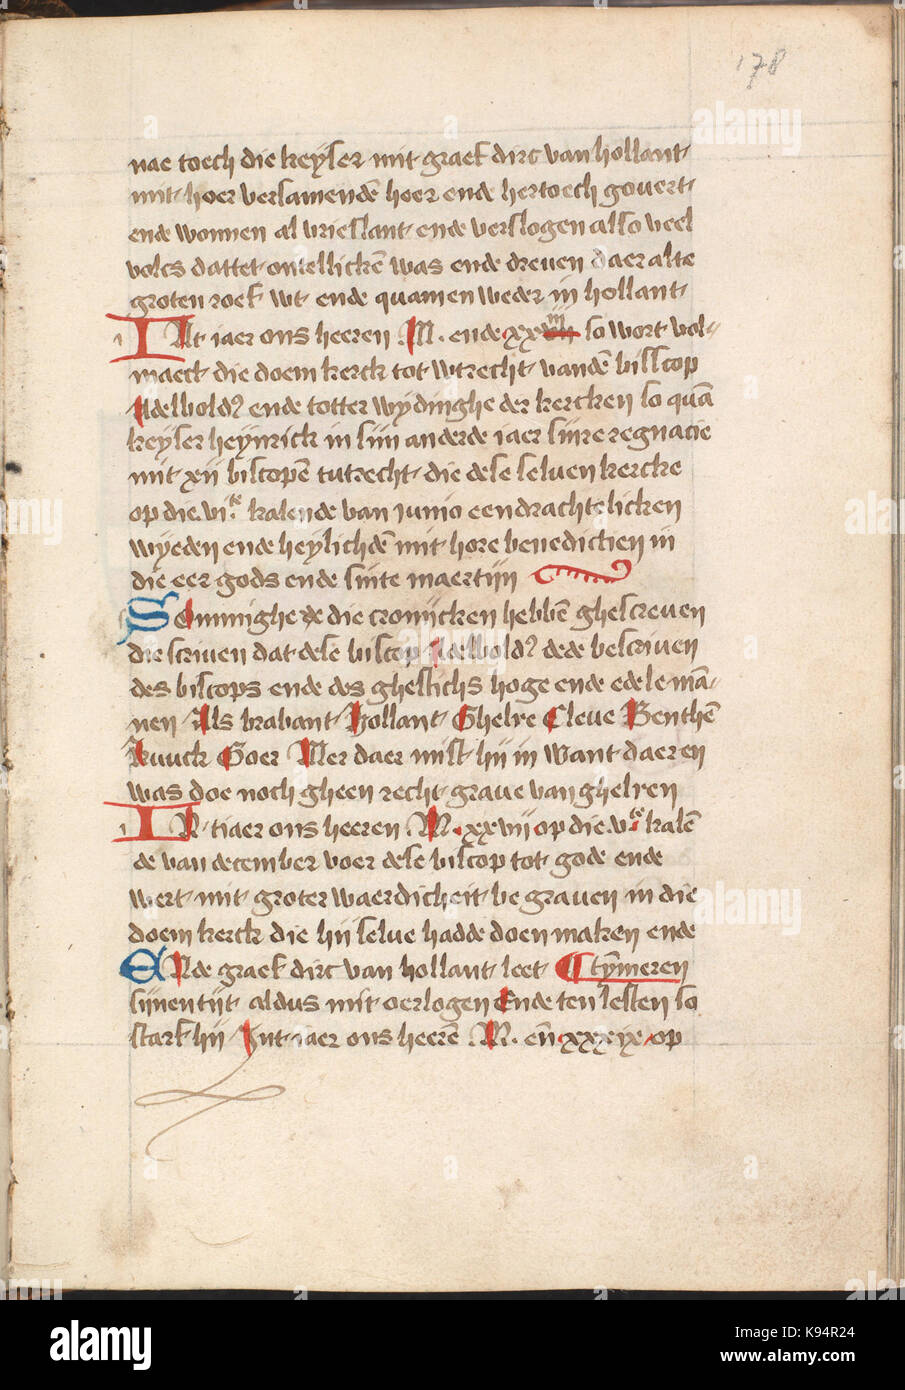 178
nae toech die keyser mit graef dirc van hollant
mit hoer versamendē hoer ende hertoech govert
ende wonnen al vrieslant ende verslogen also veel
volcs dattet ontellickē was ende dreven daer alte
groten roef wt ende quamen weder in hollant
INt iaer ons heeren M. ende xx so wort vol-
maect die doem kerck tot wtrecht vandē bisscop
Adelboldꝰ ende totter wydinghe der kercken so quā
keyser heynrick in sijn anderde iaer sijnre regnacie
mit xij biscopē tutrecht die dese selven kercke
op die vi.e kalende van iunio eendrachtelicken
wyeden ende heylichdē mit hore benedictien in
die eer gods ende sinte maertijn
Sommighe die cronijcken hebbē ghescreven
die scriven dat dese biscop Adelboldꝰ dede bescriven
des biscops ende des ghestichs hoge ende edele mā-
nen Als brabant Hollant Ghelre Cleve Benthē
Kuuck Goer Mer daer mist hij in Want daer en
was doe noch gheen recht grave van ghelren
INt iaer ons heeren M. xxvij op die v.e kalē
de van december voer dese biscop tot gode ende
wert mit groter waerdicheit begraven in die
doem kerck die hij selve hadde doen maken ende
ENde graef dirc van hollant leet
sijnen tijt aldus mit oerlogen Ende ten lesten so
starf hij Int iaer ons heerē M. eñ xxxix op
alamy
Image ID: K94R24
www.alamy.com